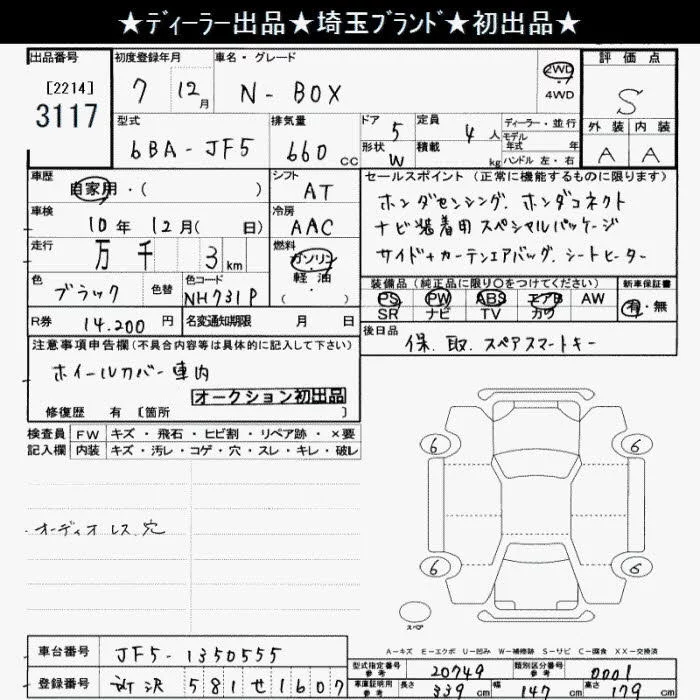 ★ディーラー出品★埼玉ブランド★初出品★
出品番号
[2214]
3117
初度登録年月
7 12月
車名・グレード
N-BOX
2WD
4WD
評価点
S
外装 内装
A A
型式
6BA-JF5
排気量
660 CC
ドア
5
形状
W
定員
4人
積載
kg
ディーラー・並行
モデル
年式 年
ハンドル 左・右
車歴
自家用・( )
シフト
AT
車検
10年12月( 日)
冷房
AAC
走行
万千 3km
燃料
ガソリン
軽油
( )
色
ブラック
色替
色コード
NH731P
R券
14.200円
名変通知期限 月 日
セールスポイント(正常に機能するものに限ります)
ホンダセンシング. ホンダコネクト
ナビ装着用スペシャルパッケージ
サイド+カーテンエアバッグ. シートヒーター
装備品(純正品に限り○をつけてください)
PS PW ABS エアB AW
SR ナビ TV カワ
新車保証書
有・無
後日品
保. 取. スペアスマートキー
注意事項申告欄(不具合内容等は具体的に記入して下さい)
ホイールカバー車内
オークション初出品
修復歴 有[箇所 ]
検査員 FW キズ・飛石・ヒビ割・リペア跡・×要
記入欄 内装 キズ・汚レ・コゲ・穴・スレ・キレ・破レ
・オーディオレス穴
6 6
6 6
スペア
A－キズ E－エクボ U－凹み W－補修跡 S－サビ C－腐食 XX－交換済
車台番号
JF5-1350555
登録番号
所沢581せ1607
型式指定番号
参考
20749
類別区分番号
参考
0001
車庫証明用
参考
長さ
339cm
幅
147cm
高さ
179cm